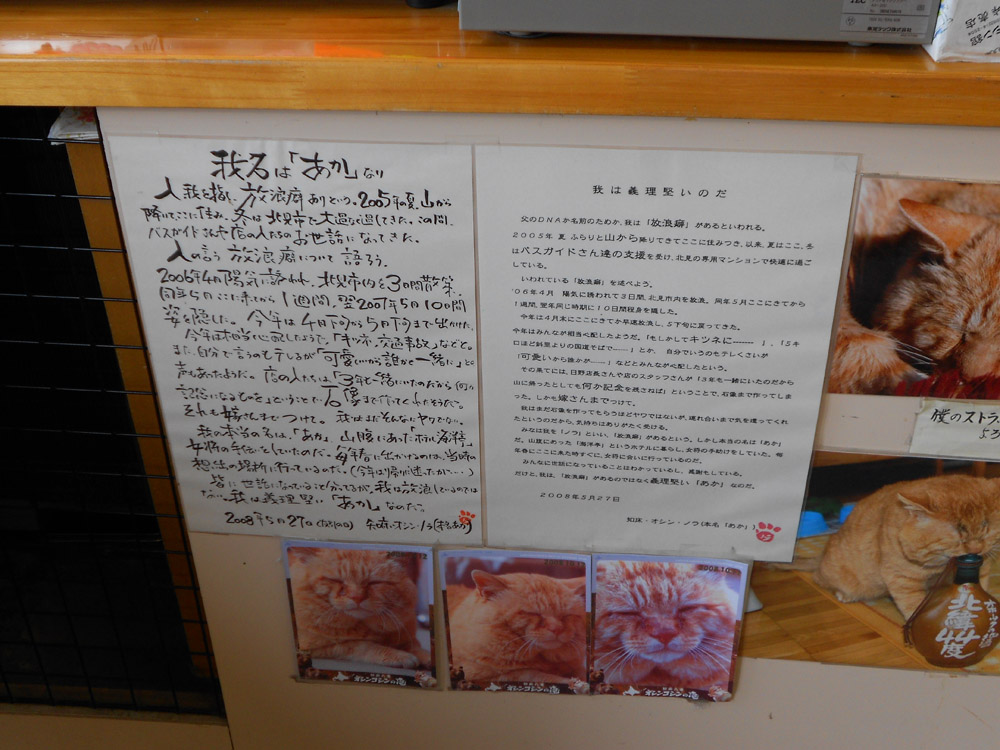 我名は「あか」なり
人我を指し、放浪癖ありという。2005年の夏、山から
降りてここに住み、冬は北見市で過してきた。この間、
バスガイドさんや店の人たちのお世話になってきた。
人の言う放浪癖について語ろう。
2006年4月陽気に誘われ、北見市内を3日間散策。
同年5月ここに来てから1週間、翌2007年5月10日間
姿を隠した。今年は4月下旬から5月下旬まで出かけた。
今年は本当心配したようで、「キツネ、交通事故」などと。
また、自分で言うのもテレるが「可愛いから誰かと一緒に」と
声もあったようだ。店の人たちは、「3年も一緒にいたのだから何か
記念になるものを」ということで石像まで作ってくれたそうだ。
それも嫁さんまでつけて。我はまだそんなにヤワでない。
我の本当の名は、「あか」。山腹にあって「ホテル海洋」
女将の手伝いをしていたのだ。毎年春に出かけるのは、当時の
想い出の場所に行っているのだ。(今年は帰り道に迷ったが・・・)
皆に世話になっていること分ってるが、我は放浪しているのでは
ない。我は義理堅い「あか」なのだ。
2008年5月27日 知床・オシン・ノラ(本名あか)
我は義理堅いのだ
父のDNAか名前のためか、我は「放浪癖」があるといわれる。
2005年 夏 ふらりと山から降りてきてここに住みつき、以来、夏はここ、冬
はバスガイドさん達の支援を受け、北見の専用マンションで快適に過ご
している。
いわれている「放浪癖」を述べよう。
'06年4月 陽気に誘われて3日間、北見市内を放浪。同年5月ここにきてから
1週間、翌年同じ時期に10日間程身を隠した。
今年は4月末にここにきてか早速放浪し、5下旬に戻ってきた。
今年はみんなが相当心配したようだ。「もしかしてキツネに-------」、「5キ
ロほど斜里よりの国道そばで-----」とか、自分でいうのもテレくさいが
「可愛いから誰かが-----」などとみんなが心配したという。
その果てには、日野店長さんや店のスタッフさんが「3年も一緒にいたのだから
山に帰ったとしても何か記念を残さねば」ということで、石像まで作ってしま
った。しかも嫁さんまでつけて。
我はまだ石像を作ってもらうほどヤワではないが、連れ合いまで気を遣ってくれ
たというのだから、気持ちはありがたく受ける。
みなは我を「ノラ」といい、「放浪癖」があるという。しかし本当の名は「あか」
だ。山腹にあった「海洋亭」というホテルに暮らし、女将の手助けをしていた。毎
年春にここに来た時すぐに、女将に会いに行っているのだ。
みんなに世話になっていることはわかっているし、感謝もしている。
だけど、我は、「放浪癖」があるのではなく義理堅い「あか」なのだ。
2008年5月27日
知床・オシン・ノラ(本名「あか」)
僕のストラ
オシンコシンの滝
2008.10
オシンコシンの滝
北緯44度